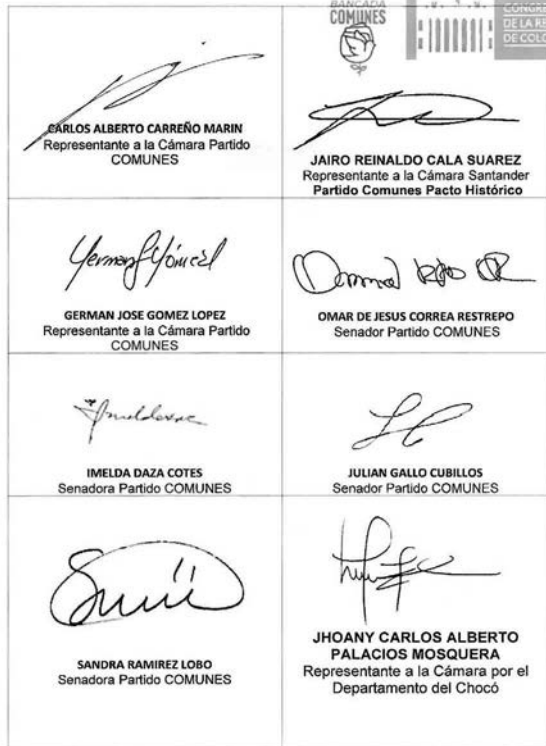 BANCADA
COMUNES
CONGRE
DE LA RE
DE COLO
CARLOS ALBERTO CARREÑO MARIN
Representante a la Cámara Partido
COMUNES
JAIRO REINALDO CALA SUAREZ
Representante a la Cámara Santander
Partido Comunes Pacto Histórico
GERMAN JOSE GOMEZ LOPEZ
Representante a la Cámara Partido
COMUNES
OMAR DE JESUS CORREA RESTREPO
Senador Partido COMUNES
IMELDA DAZA COTES
Senadora Partido COMUNES
JULIAN GALLO CUBILLOS
Senador Partido COMUNES
SANDRA RAMIREZ LOBO
Senadora Partido COMUNES
JHOANY CARLOS ALBERTO
PALACIOS MOSQUERA
Representante a la Cámara por el
Departamento del Chocó